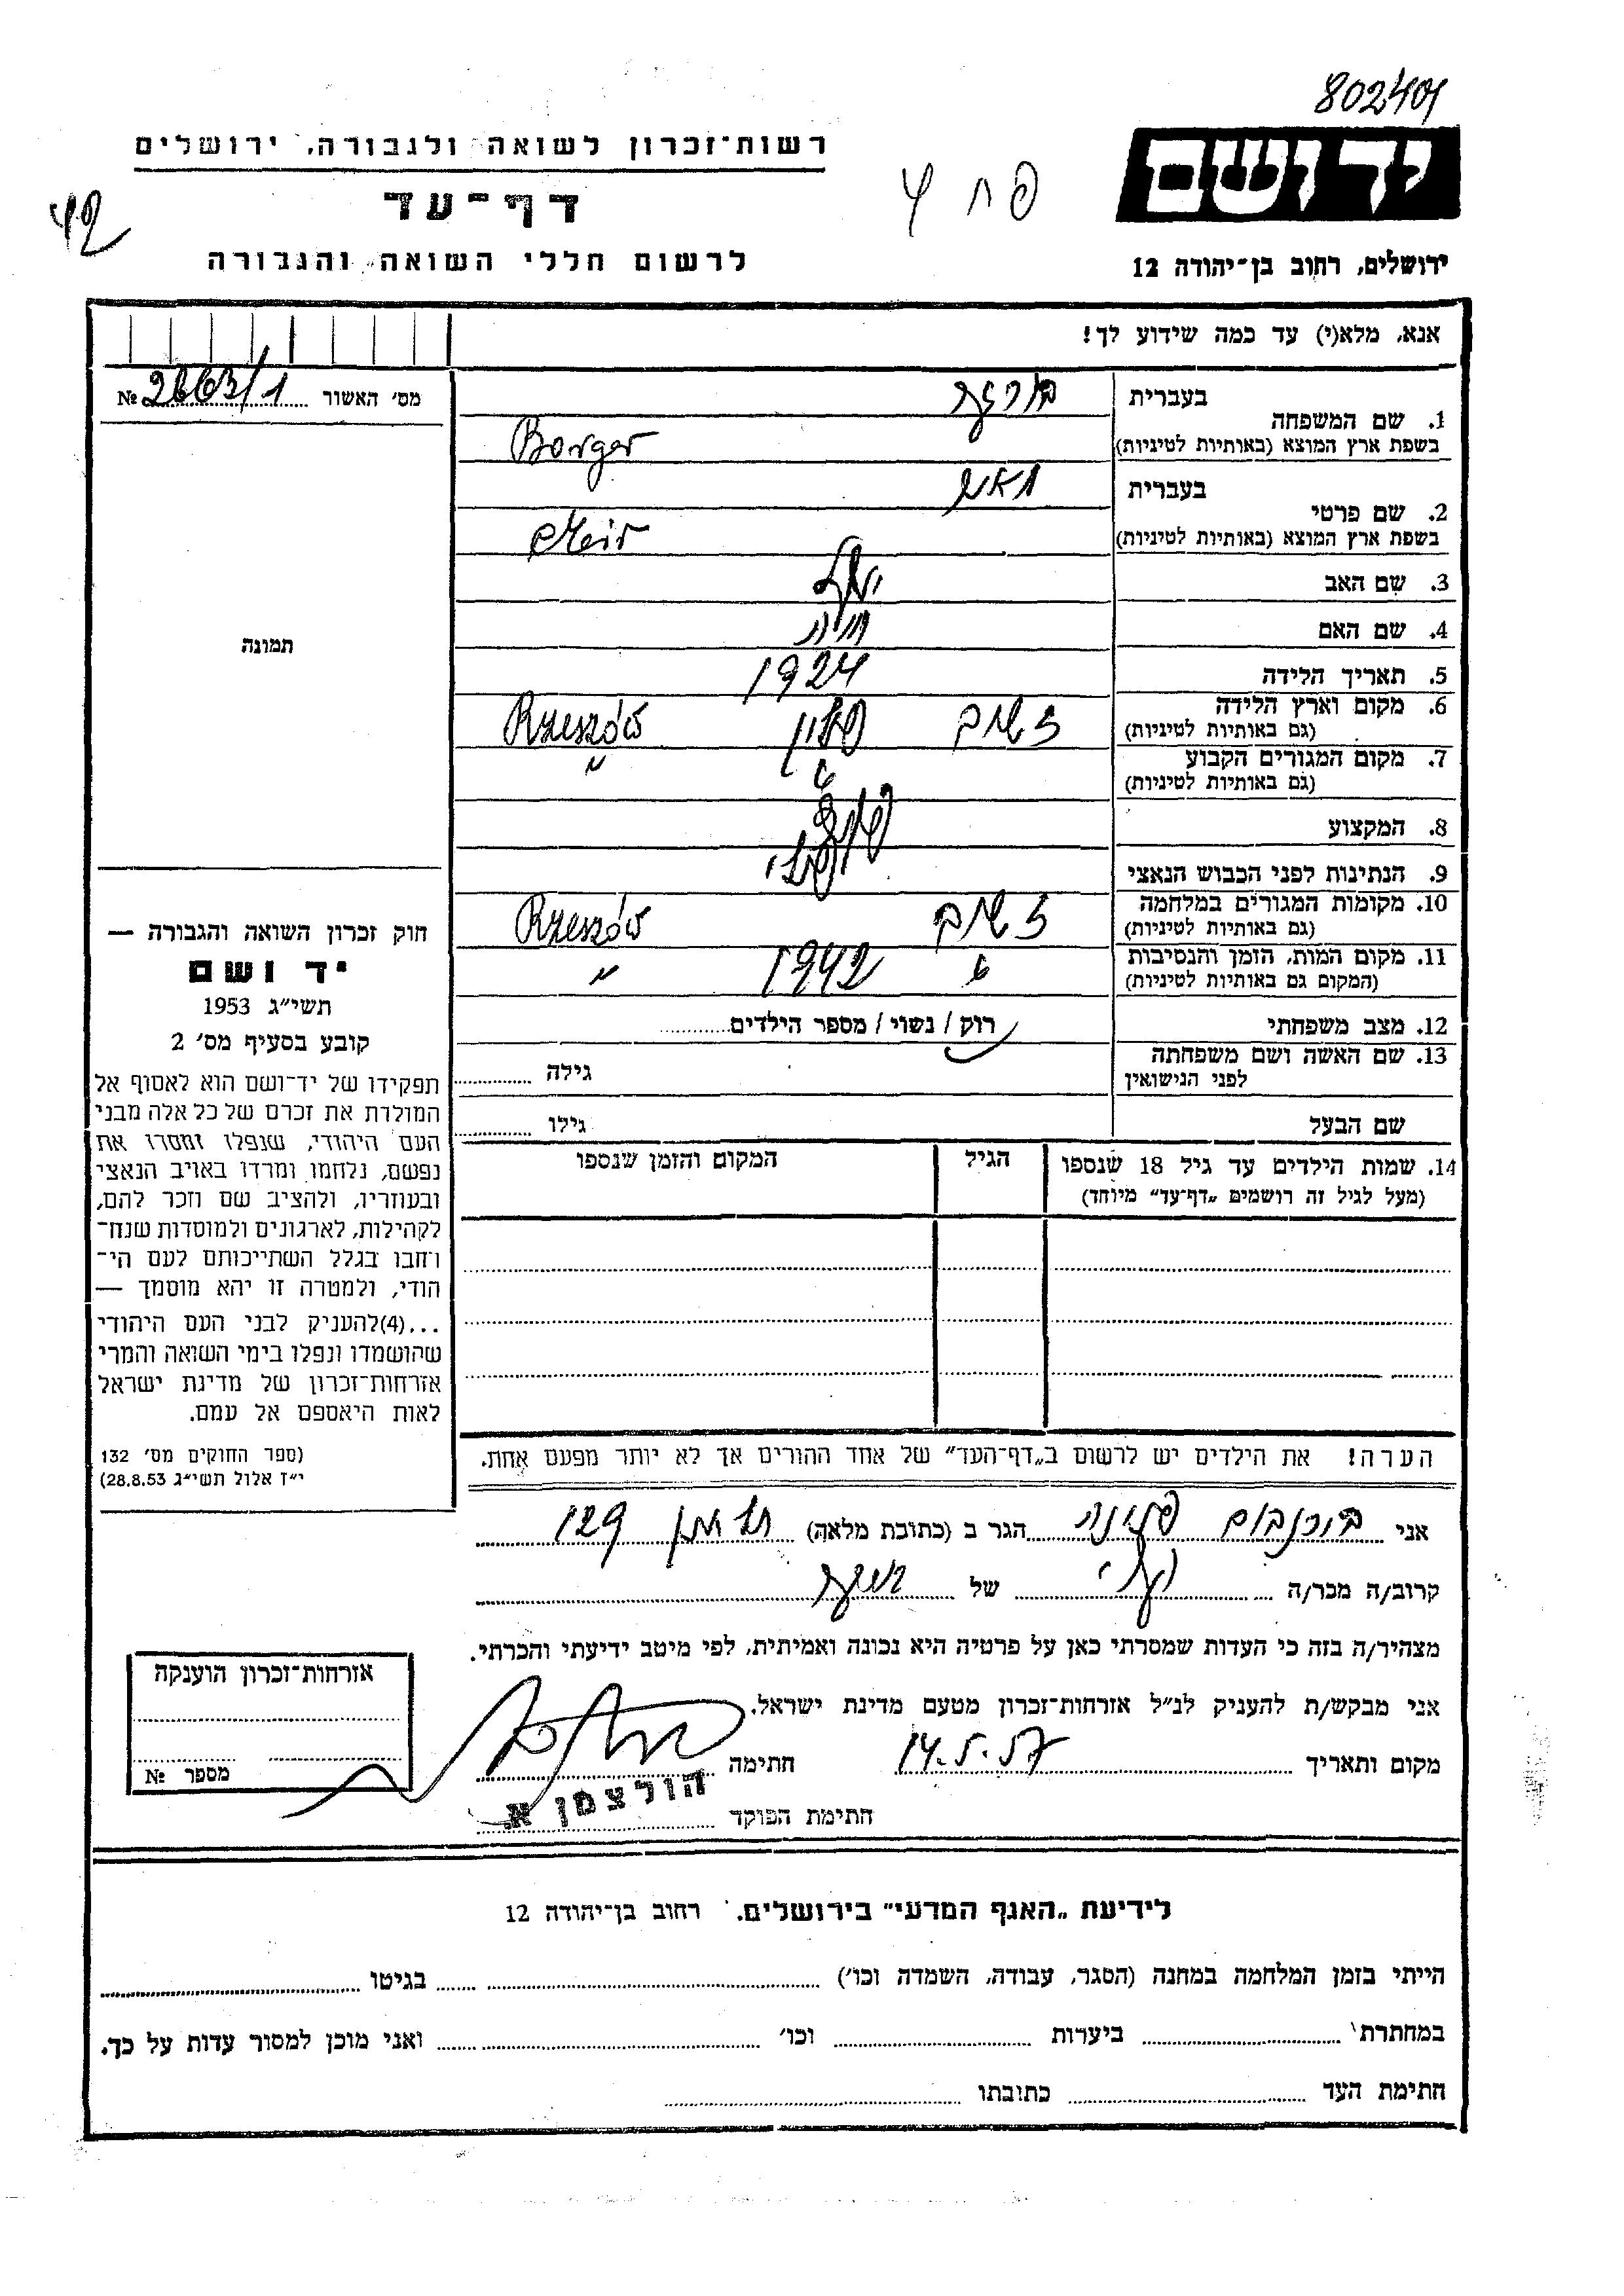 802401
רשות־זכרון לשואה ולגבורה, ירושלים
יד ושם
דף־עד
42
לרשום חללי השואה והגבורה
ירושלים, רחוב בן־יהודה 12
אנא, מלא(י) עד כמה שידוע לך!
מס׳ האשור № 2663/1
תמונה
1. שם המשפחה
בעברית בורגר
בשפת ארץ המוצא (באותיות לטיניות) Borger
2. שם פרטי
בעברית מאיר
בשפת ארץ המוצא (באותיות לטיניות) Meir
3. שם האב
4. שם האם חיה
5. תאריך הלידה 1924
6. מקום וארץ הלידה ז׳שוב פולין Rzeszów
(גם באותיות לטיניות)
7. מקום המגורים הקבוע " "
(גם באותיות לטיניות)
8. המקצוע
9. הנתינות לפני הכבוש הנאצי פולני
10. מקומות המגורים במלחמה ז׳שוב Rzeszów
(גם באותיות לטיניות)
11. מקום המות, הזמן והנסיבות " 1942 "
(המקום גם באותיות לטיניות)
12. מצב משפחתי רוק / נשוי / מספר הילדים
13. שם האשה ושם משפחתה גילה
לפני הנישואין
שם הבעל גילו
14. שמות הילדים עד גיל 18 שנספו הגיל המקום והזמן שנספו
(מעל לגיל זה רושמים „דף־עד״ מיוחד)
הערה! את הילדים יש לרשום ב„דף־העד״ של אחד ההורים אך לא יותר מפעם אחת.
חוק זכרון השואה והגבורה —
יד ושם
תשי״ג 1953
קובע בסעיף מס׳ 2
תפקידו של יד־ושם הוא לאסוף אל
המולדת את זכרם של כל אלה מבני
העם היהודי, שנפלו ומסרו את
נפשם, נלחמו ומרדו באויב הנאצי
ובעוזריו, ולהציב שם וזכר להם,
לקהילות, לארגונים ולמוסדות שנח־
רחבו בגלל השתייכותם לעם הי־
הודי, ולמטרה זו יהא מוסמך —
...(4) להעניק לבני העם היהודי
שהושמדו ונפלו בימי השואה והמרי
אזרחות־זכרון של מדינת ישראל
לאות היאספם אל עמם.
(ספר החוקים מס׳ 132
י״ז אלול תשי״ג 28.8.53)
אני בירנבוים הגר ב (כתובת מלאה) 129
קרוב/ה מכר/ה של
מצהיר/ה בזה כי העדות שמסרתי כאן על פרטיה היא נכונה ואמיתית, לפי מיטב ידיעתי והכרתי.
אני מבקש/ת להעניק לנ״ל אזרחות־זכרון מטעם מדינת ישראל.
מקום ותאריך 14.5.57 חתימה
חתימת הפוקד הולצמן א.
אזרחות־זכרון הוענקה
מספר №
לידיעת „האגף המדעי״ בירושלים. רחוב בן־יהודה 12
הייתי בזמן המלחמה במחנה (הסגר, עבודה, השמדה וכו׳) בגיטו
במחתרת ביערות וכו׳ ואני מוכן למסור עדות על כך.
חתימת העד כתובתו